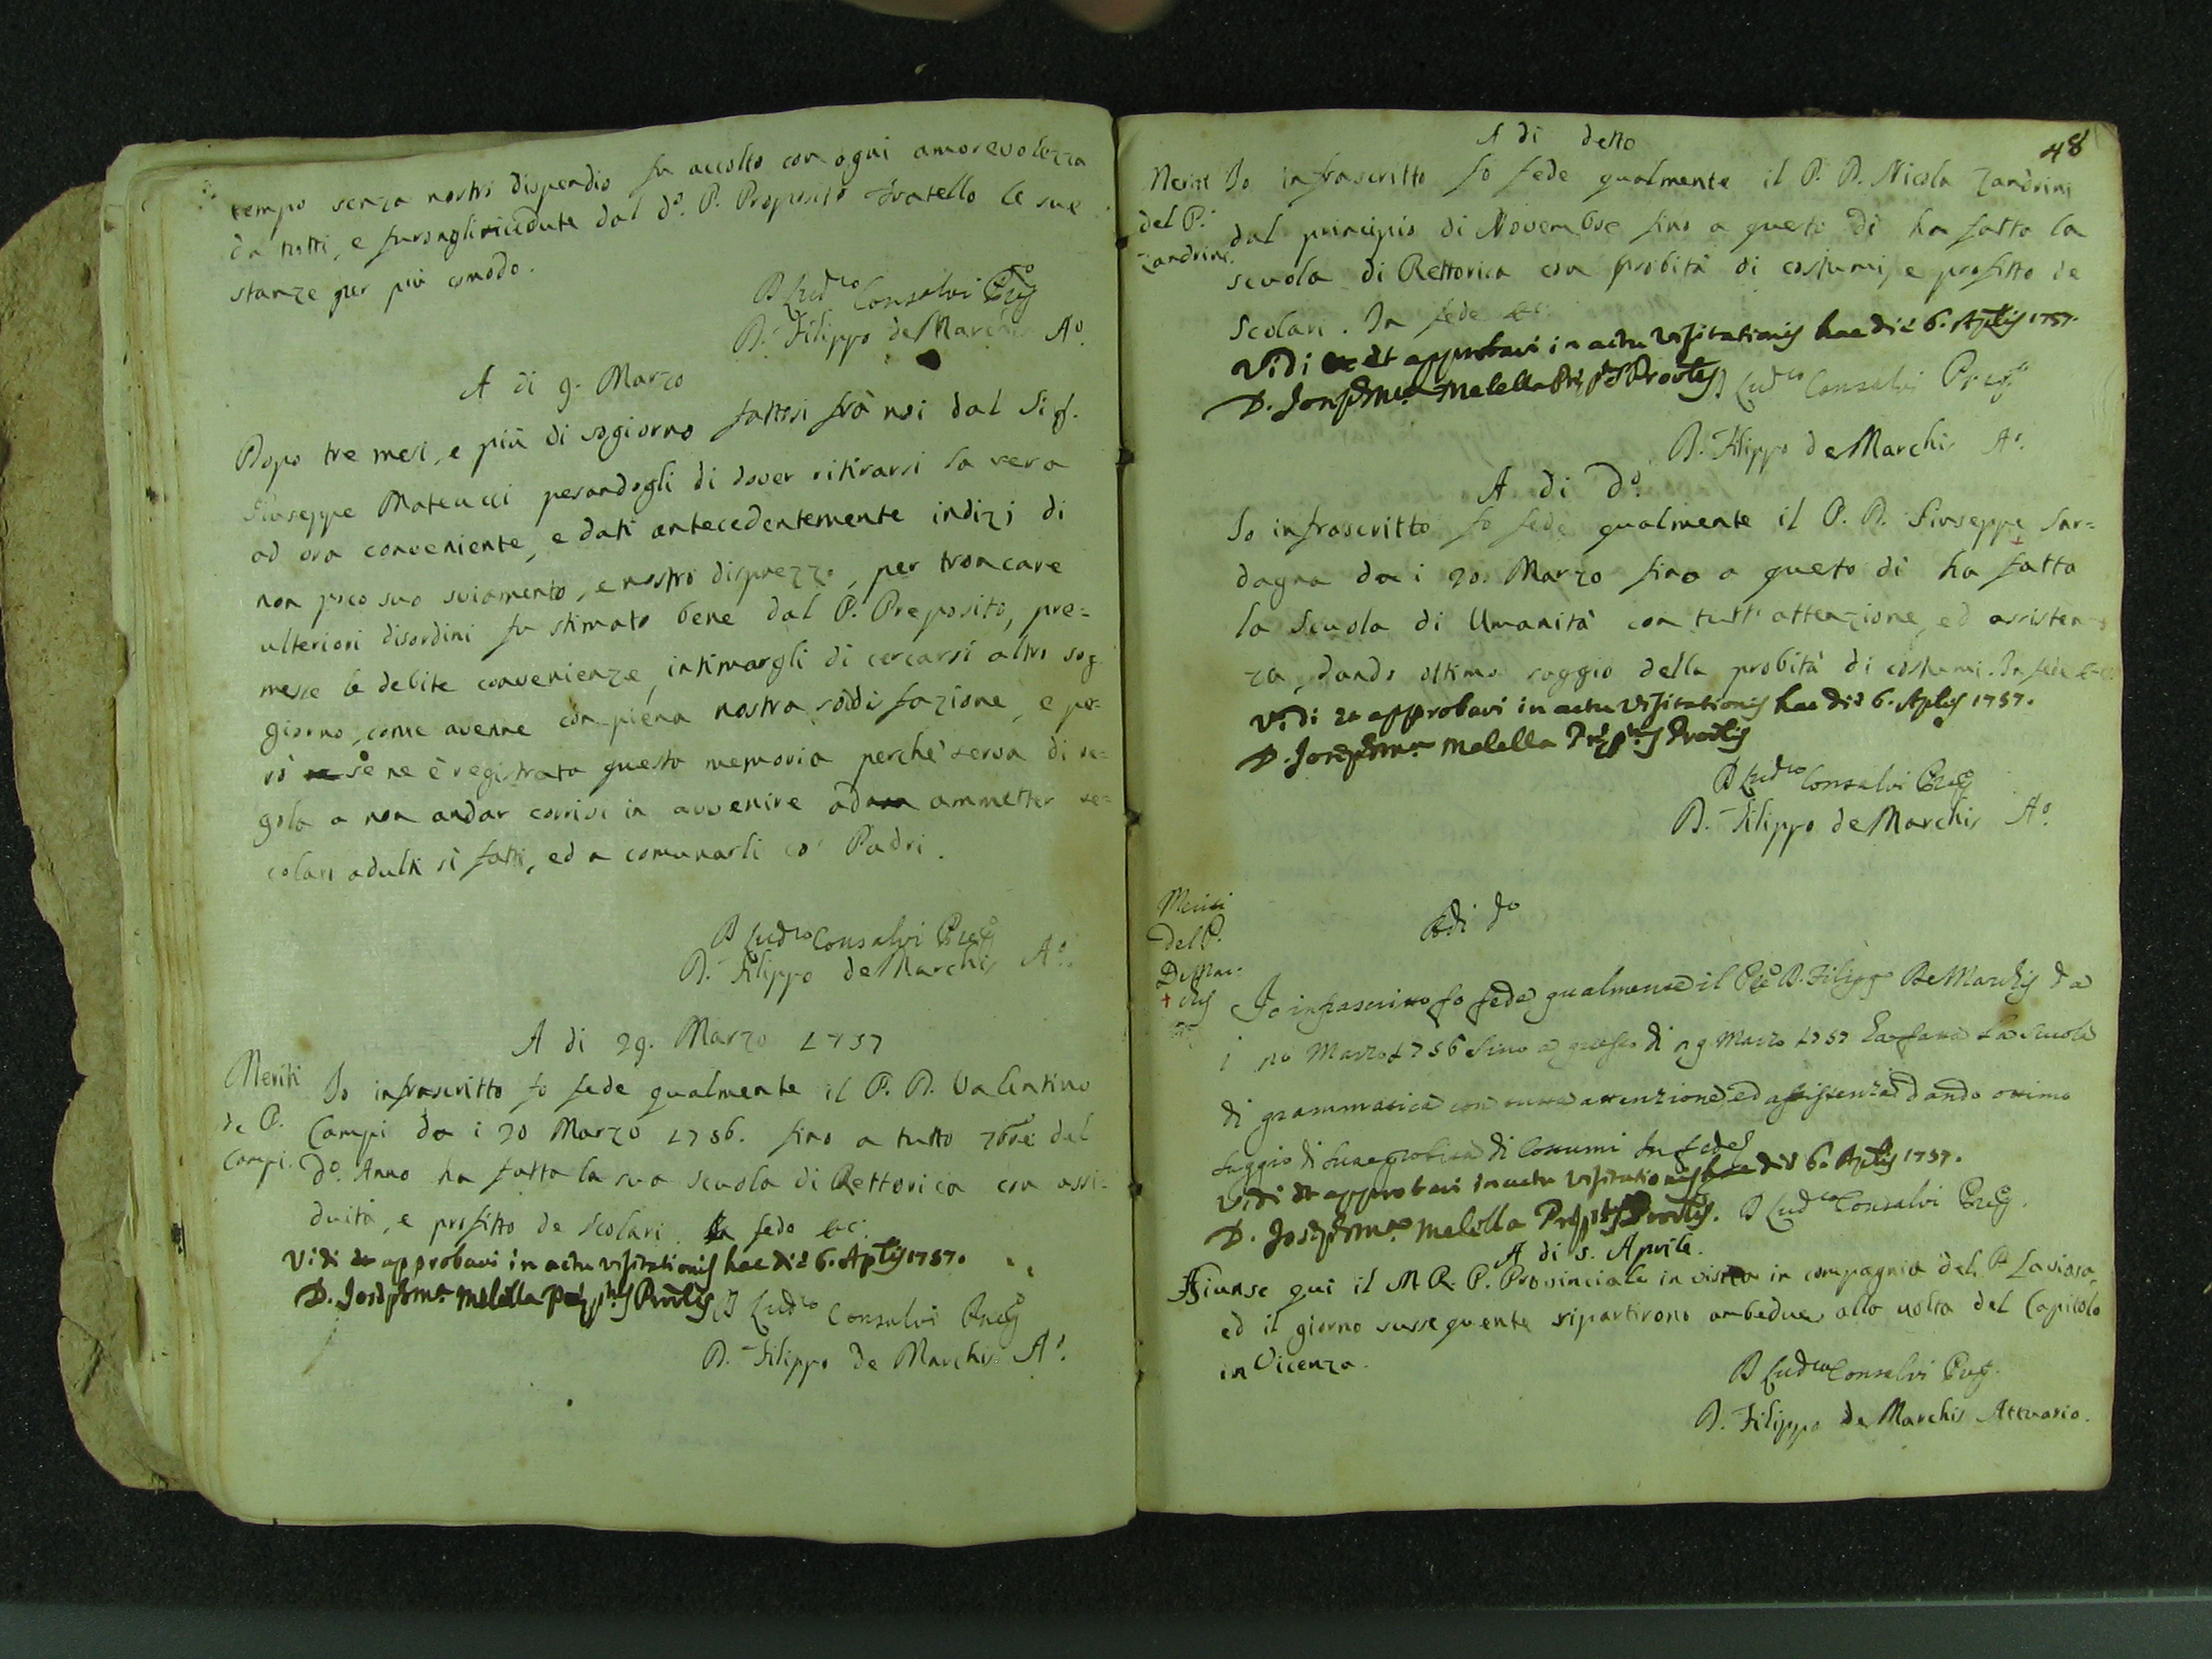 tempo senza nostro dispendio fu accolto con ogni amorevolezza
da tutti, e furongli ricedute dal d.º P. Preposito Fratello le sue
stanze per più comodo.
D. Lud.co Consalvi Prep.o
D. Filippo de Marchis A.º
A di 9. Marzo
Dopo tre mesi, e più di sogiorno fattosi frà noi dal Sig.
Giuseppe Mateucci pesandogli di dover ritirarsi la sera
ad ora conveniente, e dati antecedentemente indizj di
non poco suo sviamento, e nostro disprezzo, per troncare
ulteriori disordini fu stimato bene dal P. Preposito, pre=
messe le debite convenienze, intimargli di cercarsi altro sog
giorno, come avenne con piena nostra sodisfazione, e pe=
rò se ne è registrata questa memoria perche serva di re=
gola a non andar corrivi in avvenire ad ammetter se=
colari adulti sì fatti, ed a comunarli co' Padri.
D. Lud.co Consalvi Prep.o
D. Filippo de Marchis A.º
A di 29. Marzo 1757
Meriti
de P.
Campi.
Io infrascritto fo fede qualmente il P. D. Valentino
Campi da i 20 Marzo 1756. fino a tutto 7bre del
d.º Anno ha fatta la sua scuola di Rettorica con assi=
duità, e profitto de Scolari. In fede &c:
Vidi et approbavi in actu visitationis hac die 6. Aplis 1757.
D. Joseph M.a Melella Prep.tus Prov.lis D. Lud.co Consalvi Prep.o
D. Filippo de Marchis A.º
48
A di detto
Meriti
del P.
Zandrini.
Io infrascritto fo fede qualmente il P. D. Nicola Zandrini
dal principio di Novembre fino a questo di ha fatta la
scuola di Rettorica con probità di costumi, e profitto de
Scolari. In fede &c:
Vidi et approbavi in actu visitationis hac die 6. Aplis 1757.
D. Joseph M.a Melella Prep.tus Prov.lis D. Lud.co Consalvi Prep.o
D. Filippo de Marchis A.º
A di d.º
Io infrascritto fo fede qualmente il P. D. Giuseppe Sar=
dagna da i 20. Marzo fino a questo di ha fatta
la Scuola di Umanità con tutt' attenzione, ed assisten=
za, dando ottimo saggio della probità di costumi. In fede &c
Vidi et approbavi in actu visitationis hac die 6. Aplis 1757.
D. Joseph M.a Melella Prep.tus Prov.lis
D. Lud.co Consalvi Prep.o
D. Filippo de Marchis A.º
Meriti
del P.
De Mar=
chis
Adi d.º
Io infrascritto fo fede qualmente il P. D. Filippo De Marchis da
i Marzo 1756 sino a questo di 29 Marzo 1757 ha fatta la scuola
di grammatica con tutta attenzione, ed assistenza dando ottimo
saggio di sua probità di Costumi In fede
Vidi et approbavi in actu visitationis hac die 6. Aplis 1757.
D. Joseph M.a Melella Prep.tus Prov.lis. D. Lud.co Consalvi Prep.o
A di 5. Aprile.
Giunse qui il M. R. P. Provinciale in visita in compagnia del P. Laviosa,
ed il giorno susseguente ripartirono ambedue alla volta del Capitolo
in Vicenza.
D. Lud.co Consalvi Prep.
D. Filippo de Marchis Attuario.